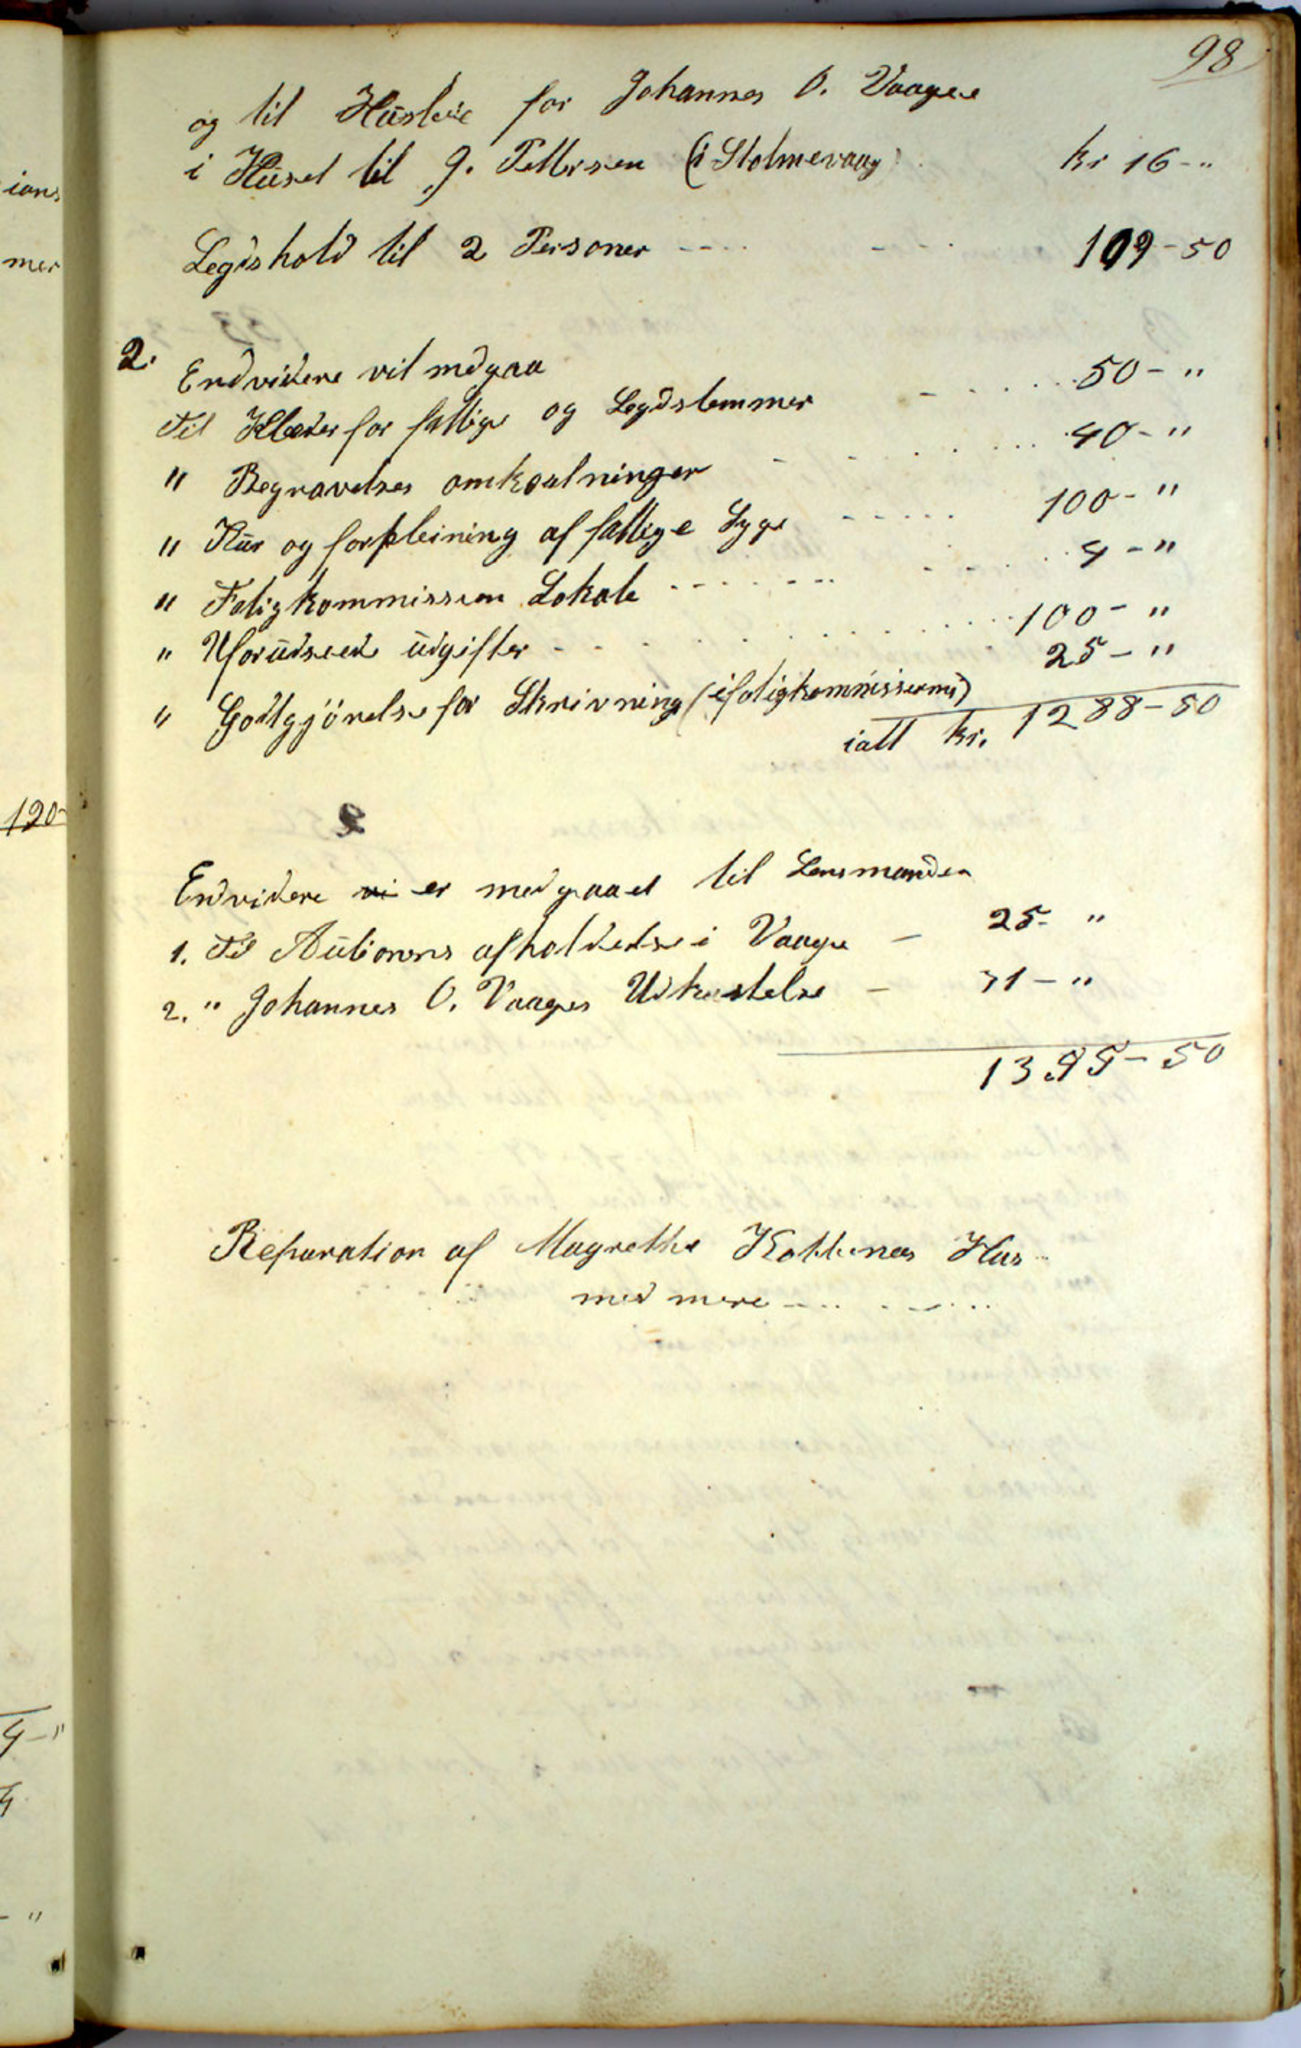 98
og til Husleie for Johannes O. Vaage
i Huset til J. Pettersen (i Stolmevaag) kr 16-"
Legdshold til 2 Personer 109-50
2. Endvidere vil medgaa
Til Klæder for fattige og Legdslemmer 50-"
" Begravelses omkostninger 40-"
" Kur og forpleining af fattige Syge 100-"
" Fatigkommissions Lokale 4-"
" Uforudseede udgifter 100-"
" Godtgjörelse for Skrivning (i fatigkommissionen) 25-"
ialt kr. 1288-50
Endvidere vi er medgaaet til Lensmanden
1. Til Auktionens afholdelse i Vaage - 25-"
2. " Johannes O. Vaages Udkastelse - 71-"
1395-50
Reparation af Magrethe Hus
med mere
ians
mer
120-
4-"
4
- "